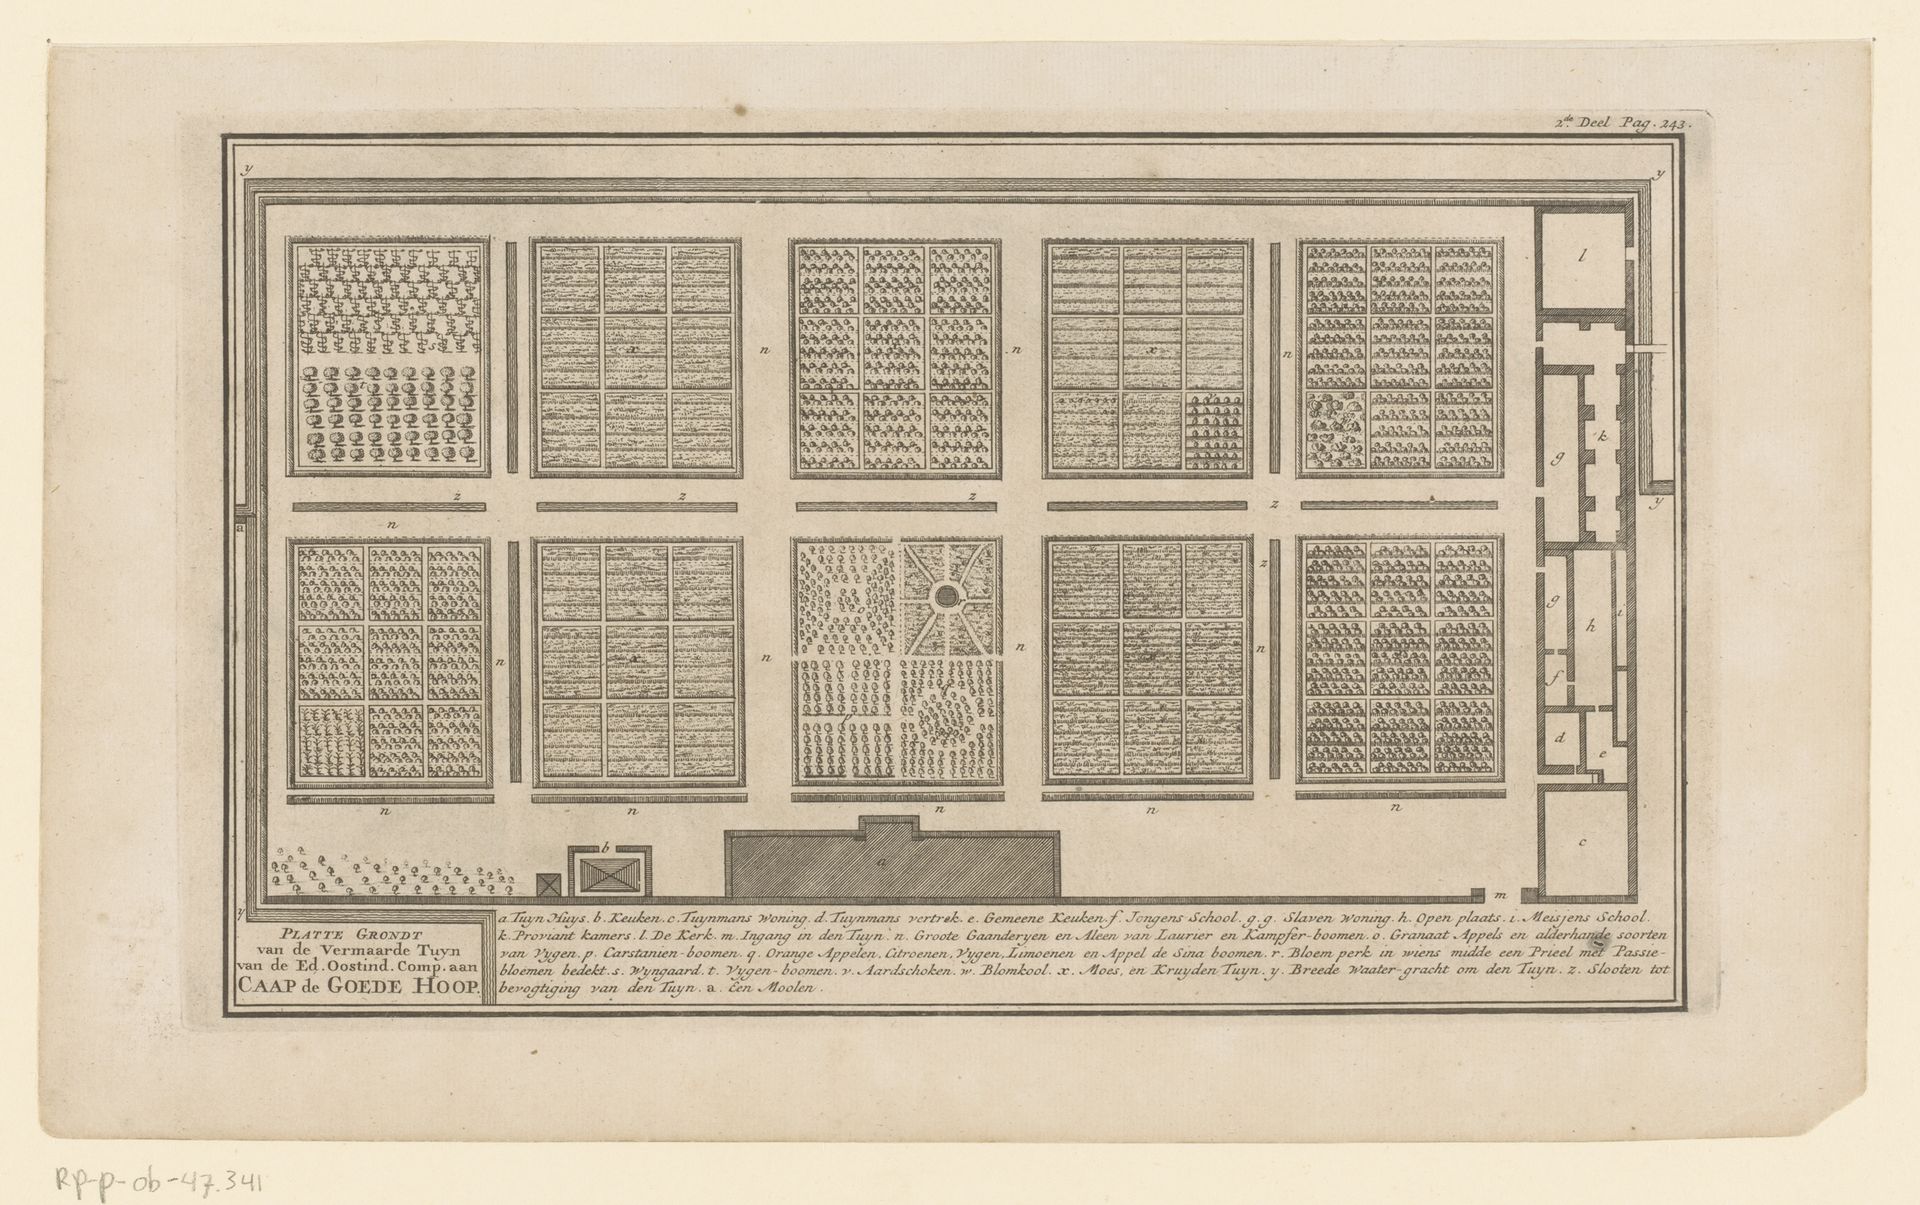 2de Deel Pag. 243.
y
y
l
n
n
n
x
x
k
g
z
z
z
z
y
n
a
z
g
i
h
n
n
n
n
x
f
p
d
e
n
n
n
n
n
b
a
c
m
y
a. Tuyn Huys. b. Keuken. c. Tuynmans woning. d. Tuynmans vertrek. e. Gemeene Keuken. f. Jongens School. g.g. Slaven woning. h. Open plaats. i. Meisjens School.
k. Proviant kamers. l. De Kerk. m. Ingang in den Tuyn. n. Groote Gaanderyen en Aleen van Laurier en Kampfer-boomen. o. Granaat Appels en alderhande soorten
van Vygen. p. Carstanien-boomen. q. Orange Appelen, Citroenen, Vygen, Limoenen en Appel de Sina boomen. r. Bloem perk in wiens midde een Prieel met Passie-
bloemen bedekt. s. Wyngaard. t. Vygen-boomen. v. Aardschoken. w. Blomkool. x. Moes, en Kruyden Tuyn. y. Breede Waater-gracht om den Tuyn. z. Slooten tot
bevogtiging van den Tuyn. a. Een Moolen.
PLATTE GRONDT
van de Vermaarde Tuyn
van de Ed. Oostind. Comp. aan
CAAP de GOEDE HOOP.
RP-P-OB-47.341